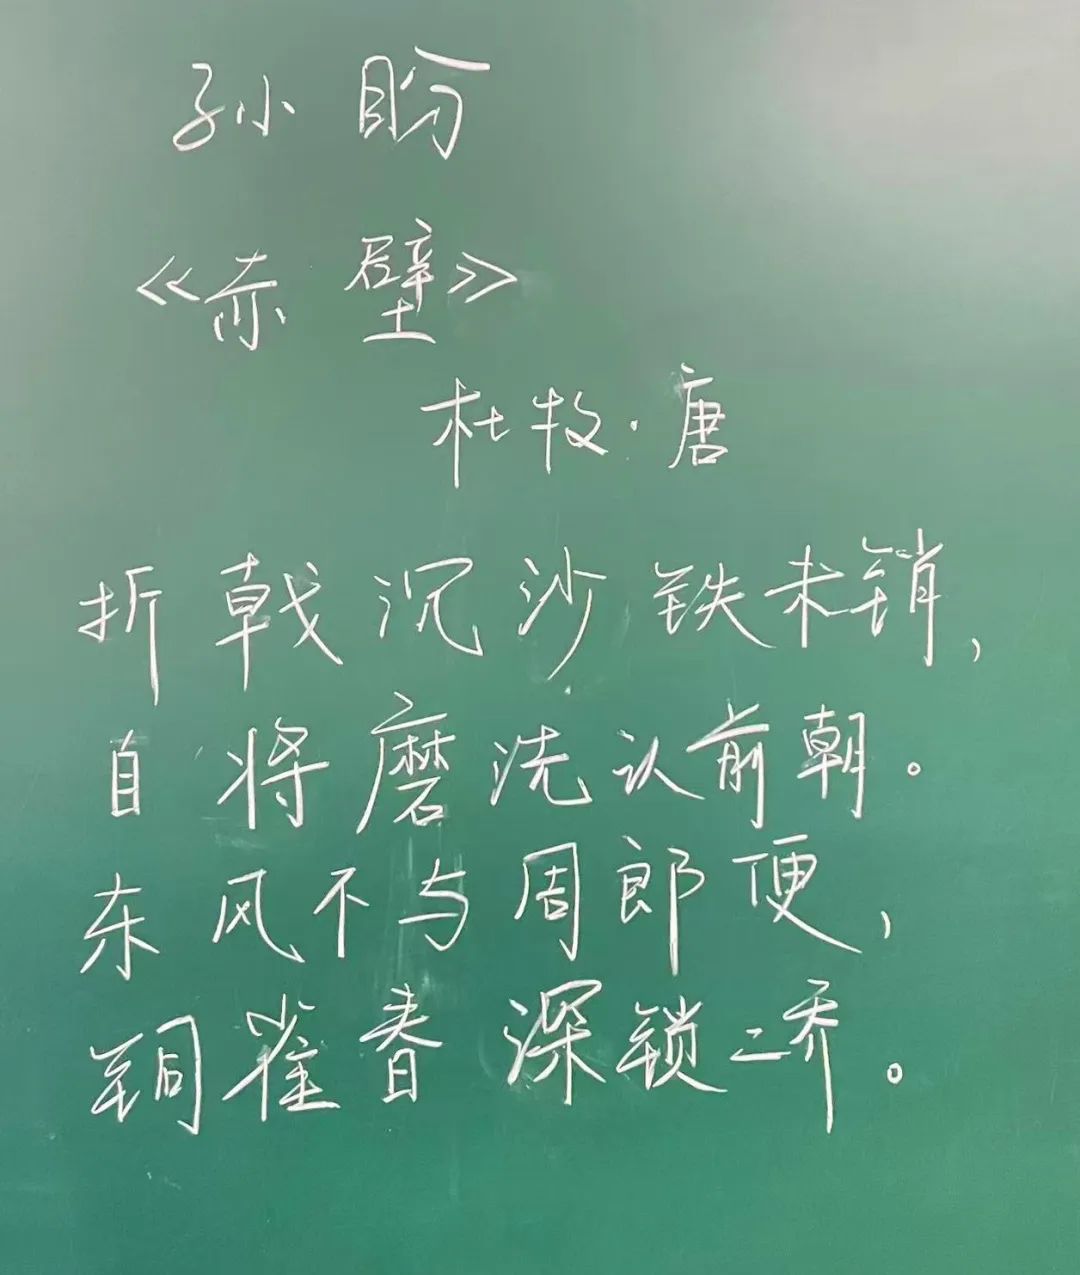 孙盼
《赤壁》
杜牧·唐
折戟沉沙铁未销,
自将磨洗认前朝。
东风不与周郎便,
铜雀春深锁二乔。